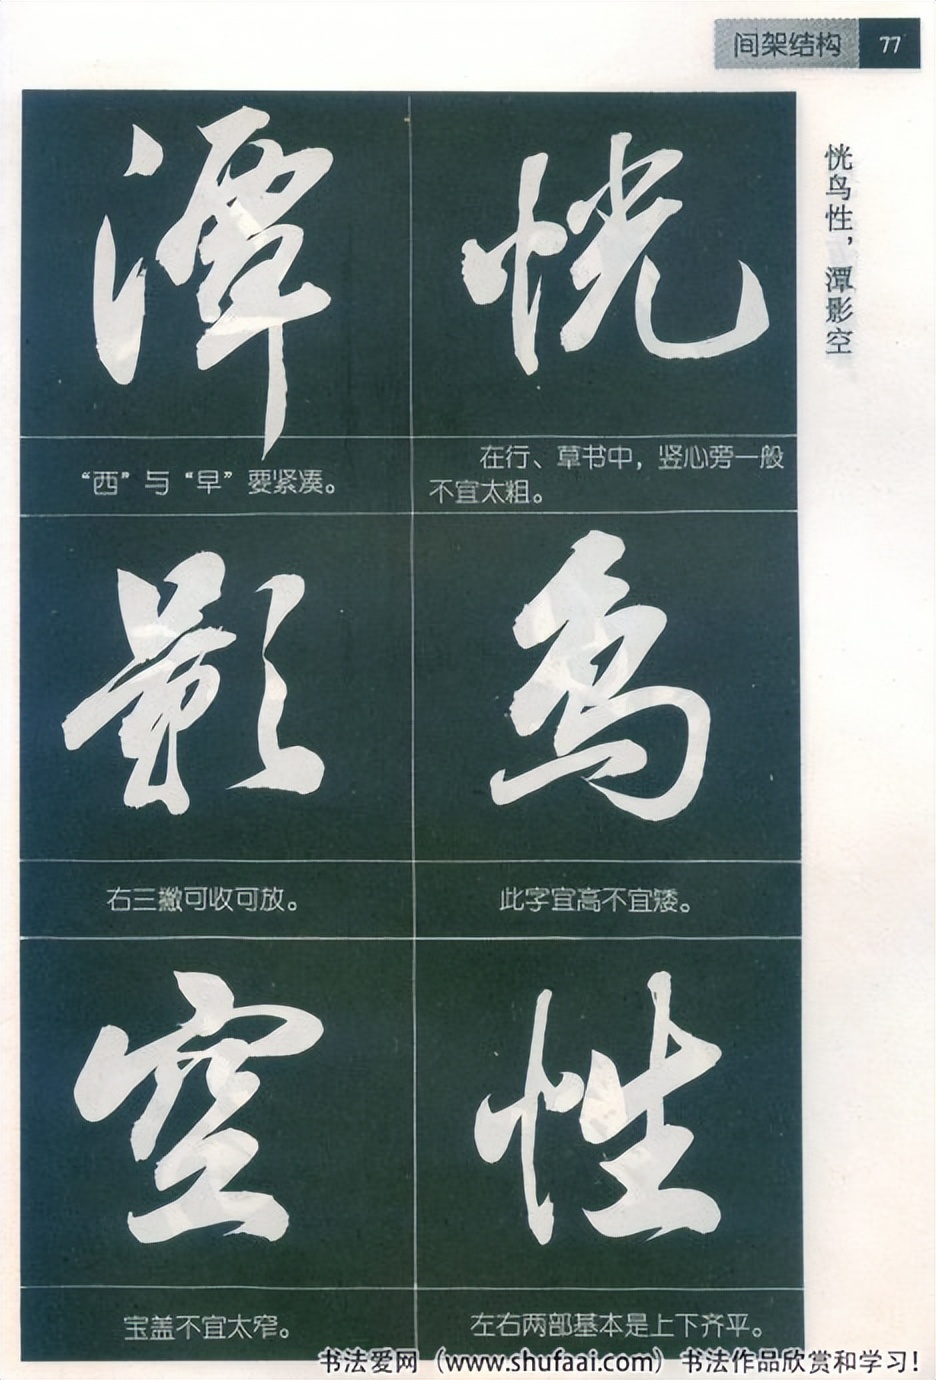 间架结构 77
恍鸟性，潭影空
恍
在行、草书中，竖心旁一般
不宜太粗。
鸟
此字宜高不宜矮。
性
左右两部基本是上下齐平。
潭
“西”与“早”要紧凑。
影
右三撇可收可放。
空
宝盖不宜太窄。
书法爱网（www.shufaai.com）书法作品欣赏和学习！